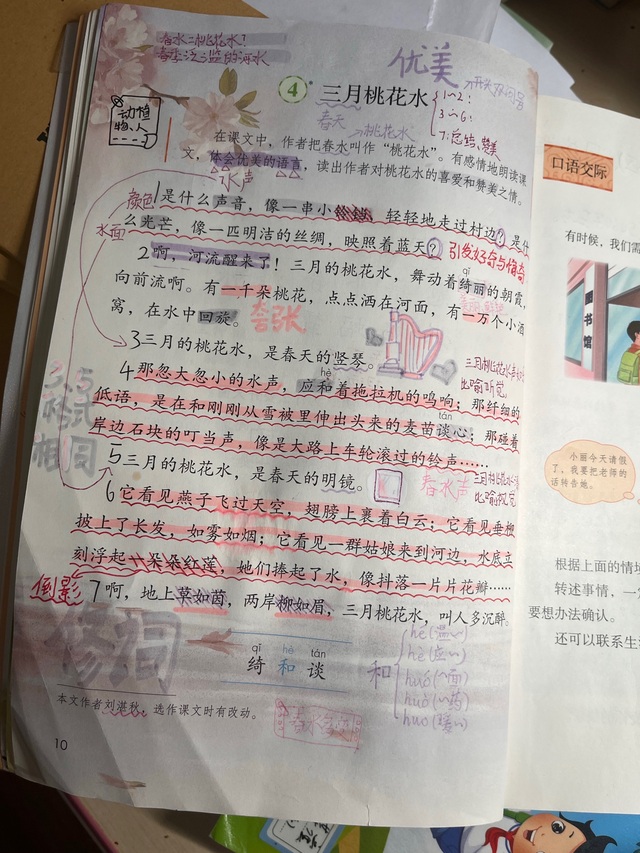 春水=桃花水?
春季泛滥的河水
优美
开头双问号
4
三月桃花水
1~2:
3~6:
7:总结、赞美
春天
桃花水
动植
物、人
在课文中，作者把春水叫作“桃花水”。有感情地朗读课
文，体会优美的语言，读出作者对桃花水的喜爱和赞美之情。
水声
颜色
水面
1是什么声音，像一串小 轻轻地走过村边?是什
么光芒，像一匹明洁的丝绸，映照着蓝天?
引发好奇
2啊，河流醒来了！三月的桃花水，舞动着绮丽的朝霞，
qǐ
向前流啊。有一千朵桃花，点点洒在河面，有一万个小酒
窝，在水中回旋。
夸张
3三月的桃花水，是春天的竖琴。
4那忽大忽小的水声，应和着拖拉机的鸣响；那纤细的
hè
低语，是在和刚刚从雪被里伸出头来的麦苗谈心；那碰着
tán
岸边石块的叮当声，像是大路上车轮滚过的铃声……
比喻听觉
3、5
形式
相同
5三月的桃花水，是春天的明镜。
春水声
比喻视觉
6它看见燕子飞过天空，翅膀上裹着白云；它看见垂柳
披上了长发，如雾如烟；它看见一群姑娘来到河边，水底立
刻浮起一朵朵红莲，她们捧起了水，像抖落一片片花瓣……
倒影
7啊，地上草如茵，两岸柳如眉，三月桃花水，叫人多沉醉。
qǐ hè tán
绮 和 谈
和
hé(温~)
hè(应~)
huó(~面)
huò(~药)
huo(暖~)
本文作者刘湛秋，选作课文时有改动。
10
口语交际
有时候，我们需
图书馆
小丽今天请假
了，我要把老师的
话转告她。
根据上面的情境
转述事情，一定
要想办法确认。
还可以联系生